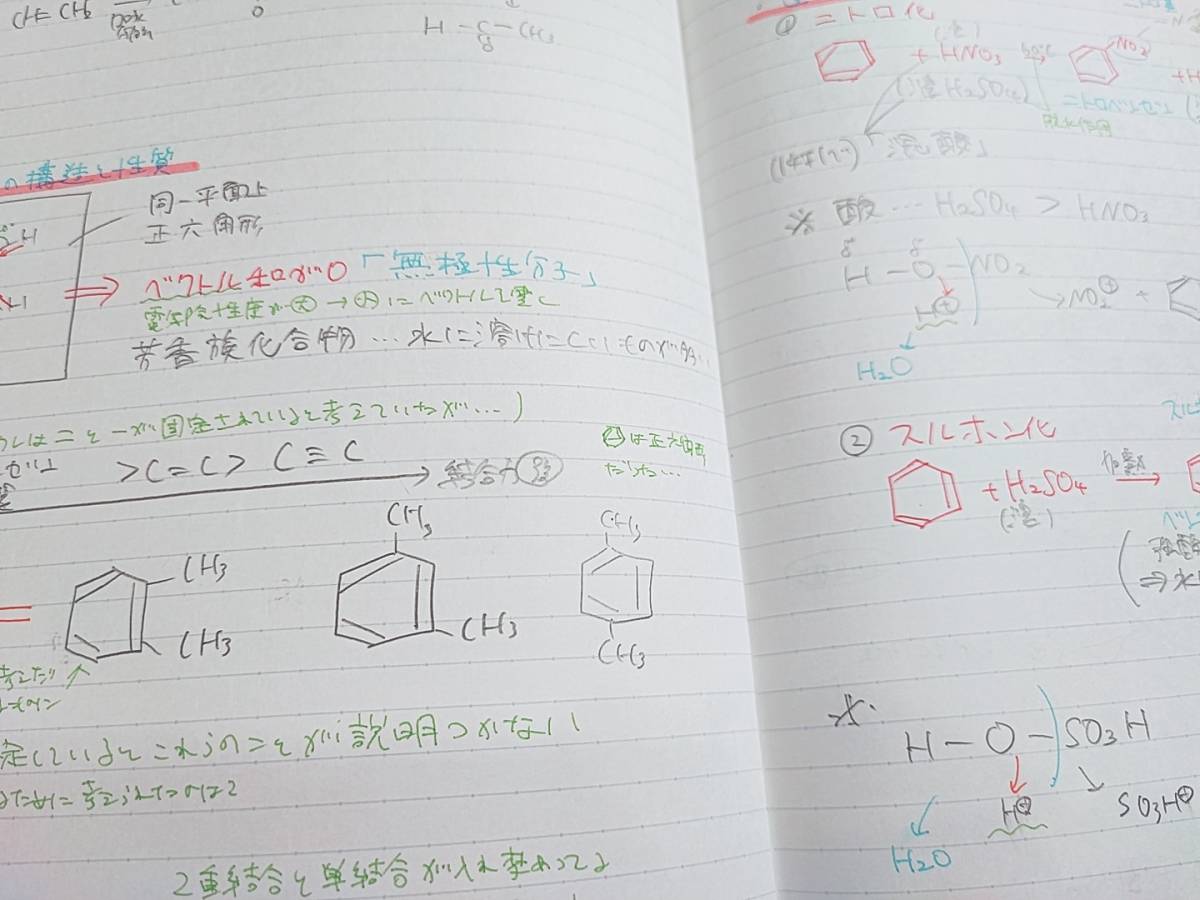 CH≡CH
H-C-CH3
O
の構造と性質
同一平面上
正六角形
⇒ ベクトル和が0「無極性分子」
電気陰性度が大→
にベクトルを書く
芳香族化合物…水に溶けにくい
とーが固定されていると考えていたが…)
>C=C< C≡C → 結合力 強
は正六角形
だった…
CH3
CH3
CH3
CH3
CH3
CH3
定しているとこれらのことが説明つかない
ために考えられたのは?
2重結合と単結合が入れ替わってる
① ニトロ化
+HNO3
(濃)
(濃H2SO4)
NO2
ニトロベンゼン
「混酸」
※ 酸…H2SO4 > HNO3
δ⁻ δ
H-O-NO2
H⊕
→NO2⊕ +
H2O
② スルホン化
+H2SO4
(濃)
加熱
→
⇒水
※
H-O-SO3H
H⊕
SO3H⊕
H2O